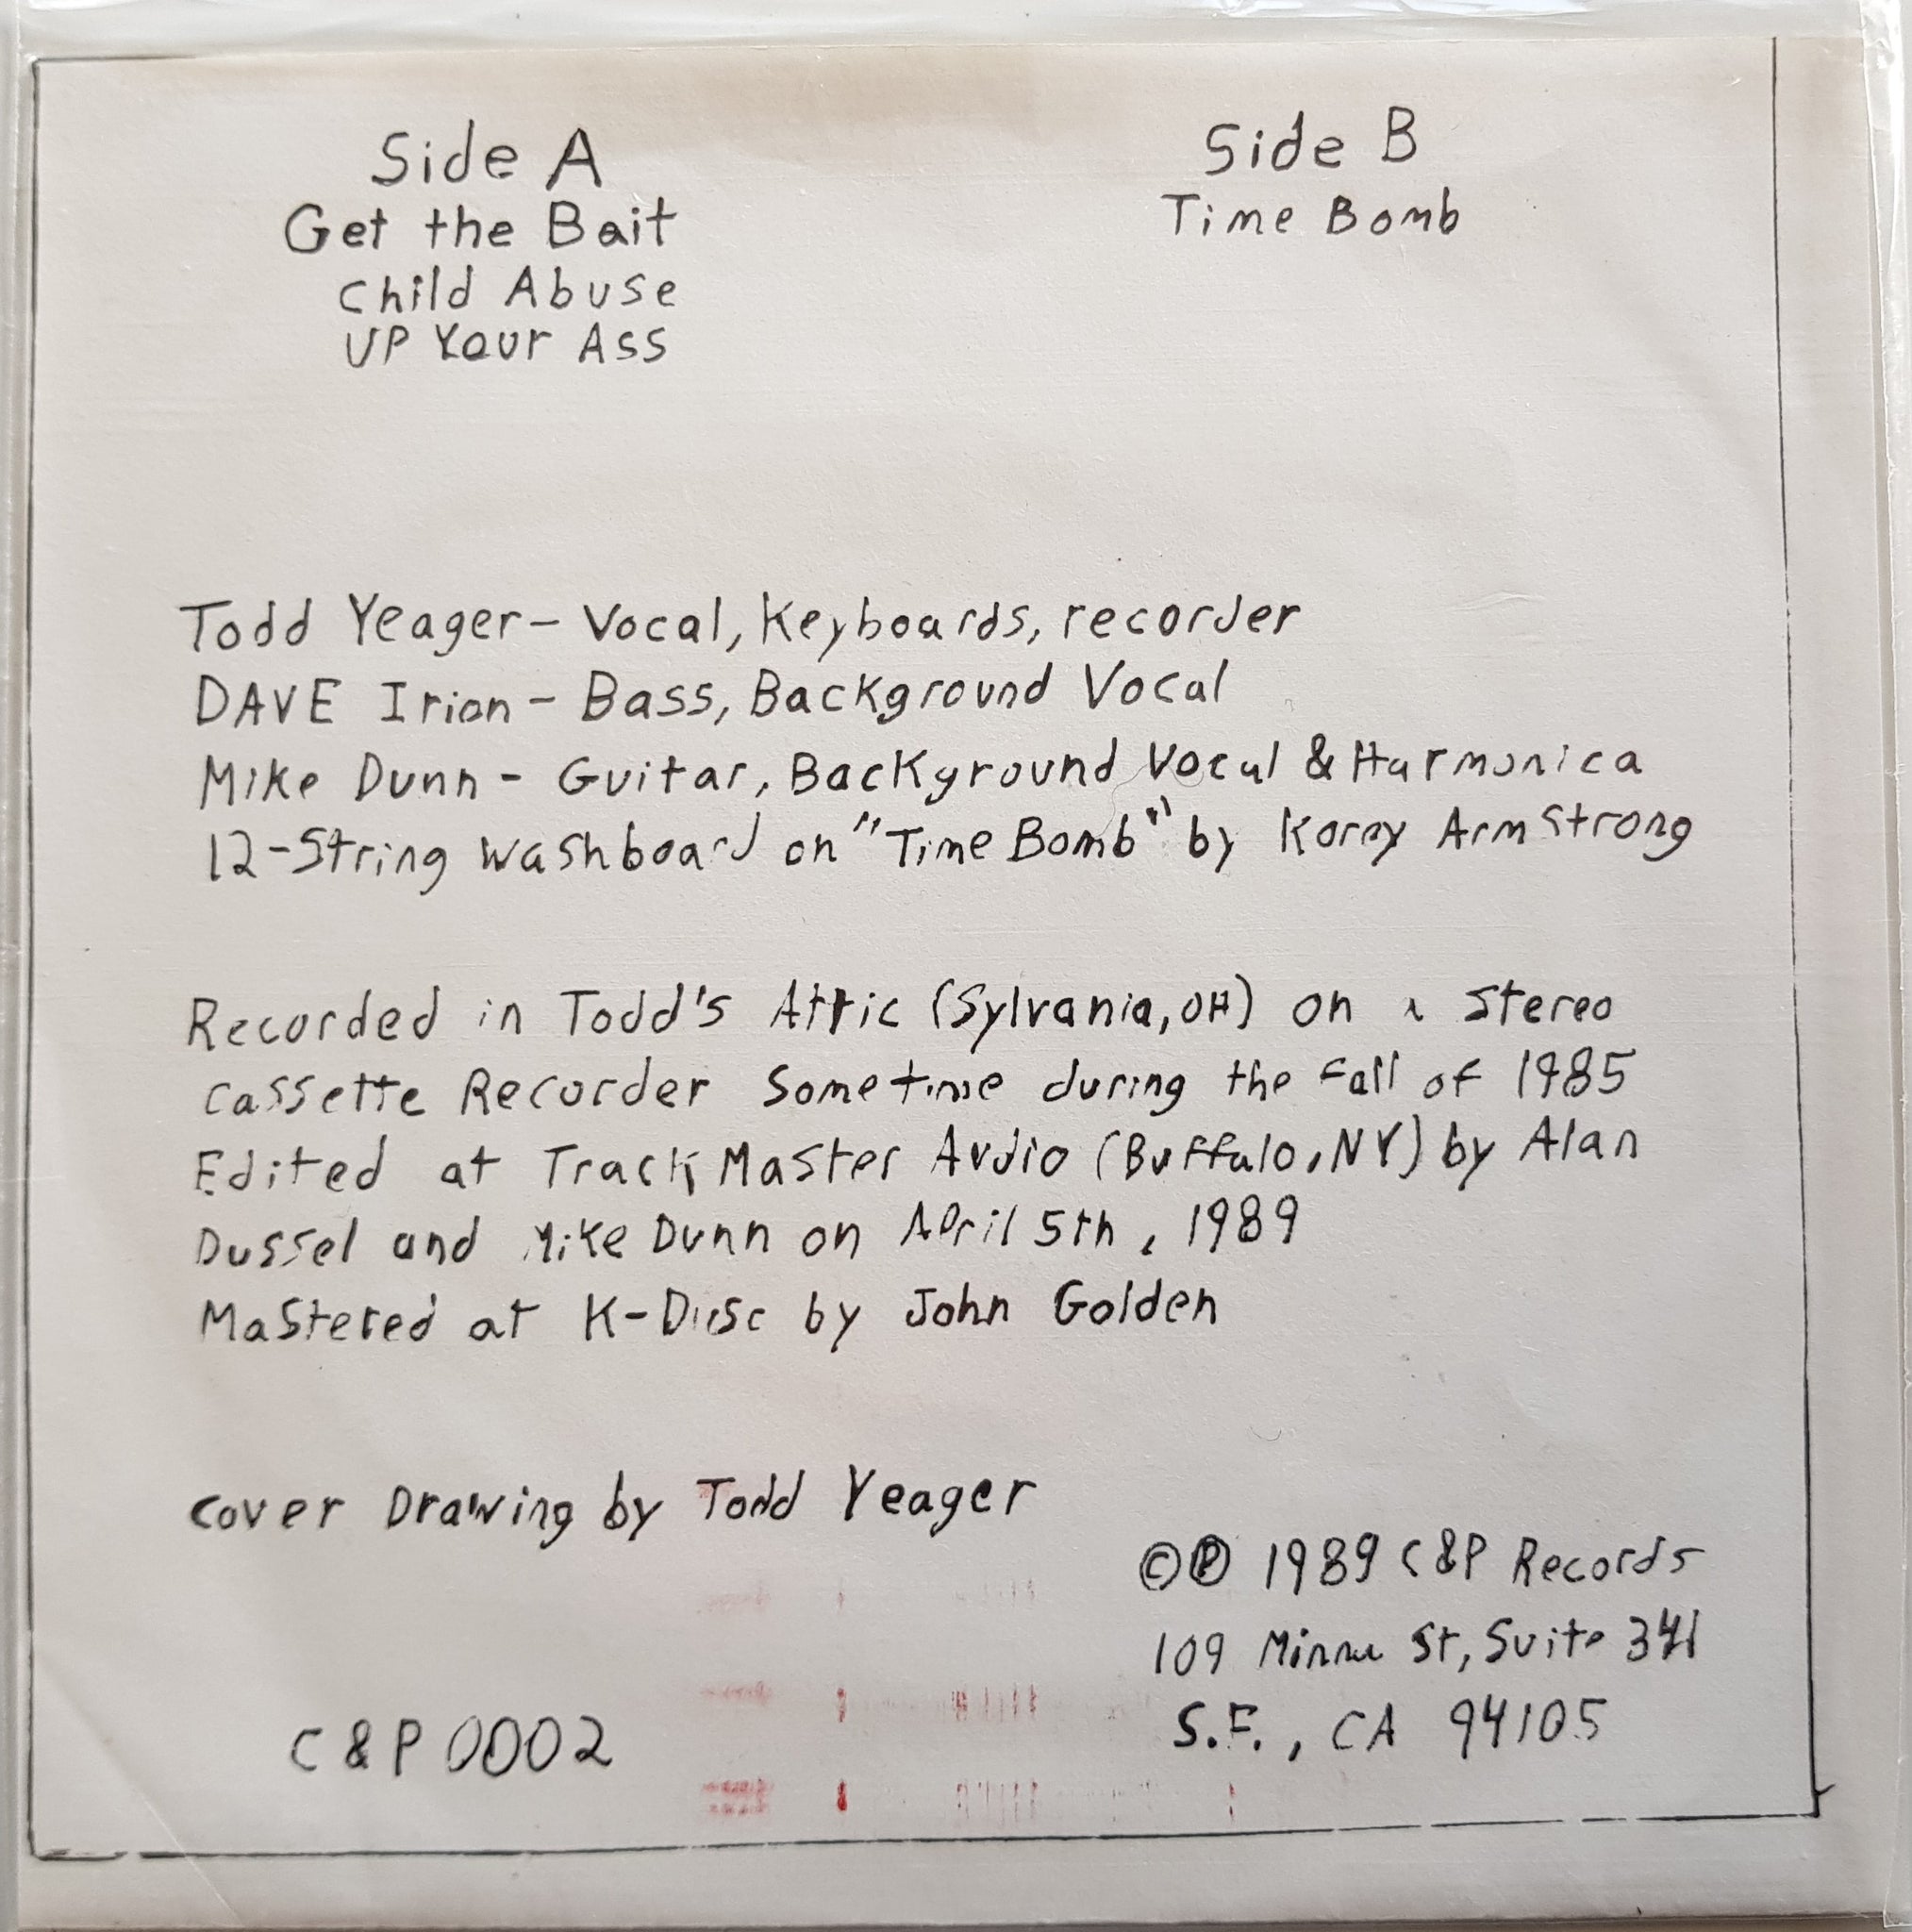 Side A
Get the Bait
Child Abuse
UP Your Ass
Side B
Time Bomb
Todd Yeager - Vocal, Keyboards, recorder
DAVE Irion - Bass, Background Vocal
Mike Dunn - Guitar, Background Vocal & Harmonica
12-String Washboard on "Time Bomb" by Armstrong
Recorded in Todd's Attic (Sylvania, OH) on a Stereo
Cassette Recorder Sometime during the Fall of 1985
Edited at Track Master Audio (Buffalo, NY) by Alan
Dussel and Mike Dunn on April 5th, 1989
Mastered at K-Disc by John Golden
Cover Drawing by Todd Yeager
© ℗ 1989 C&P Records
109 Minna St, Suite 341
S.F., CA 94105
C&P 0002